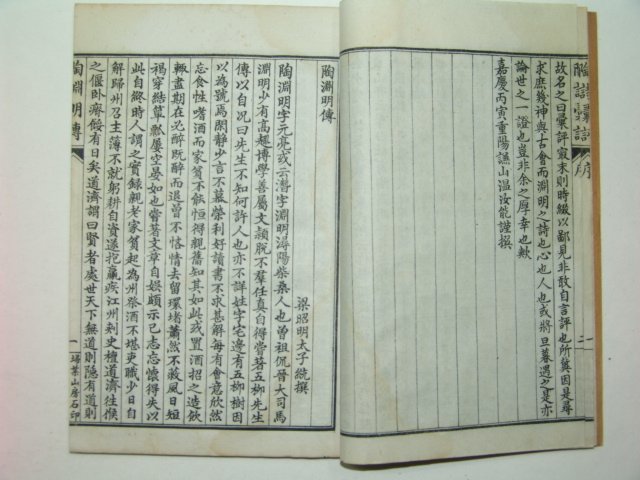 陶詩彙評 序
故名之曰彙評最末則時綴以鄙見非敢自言評也所冀因是尋
求庶幾神與古會而淵明之詩也心也人也或將旦暮遇之是亦
論世之一證也豈非余之厚幸也歟
嘉慶丙寅重陽謙山溫汝能謹撰
二
陶淵明傳
梁昭明太子統撰
陶淵明字元亮或云潛字淵明潯陽柴桑人也曾祖侃晉大司馬
淵明少有高趣博學善屬文穎脫不羣任真自得嘗著五柳先生
傳以自況曰先生不知何許人也亦不詳姓字宅邊有五柳樹因
以為號焉閑靜少言不慕榮利好讀書不求甚解每有會意欣然
忘食性嗜酒而家貧不能恒得親舊知其如此或置酒招之造飲
輒盡期在必醉既醉而退曾不恡情去留環堵蕭然不蔽風日短
褐穿結簞瓢屢空晏如也嘗著文章自娛頗示己志忘懷得失以
此自終時人謂之實錄親老家貧起為州祭酒不堪吏職少日自
解歸州召主簿不就躬耕自資遂抱羸疾江州刺史檀道濟往候
之偃卧瘠餒有日矣道濟謂曰賢者處世天下無道則隱有道則
陶淵明傳
一
埽葉山房石印